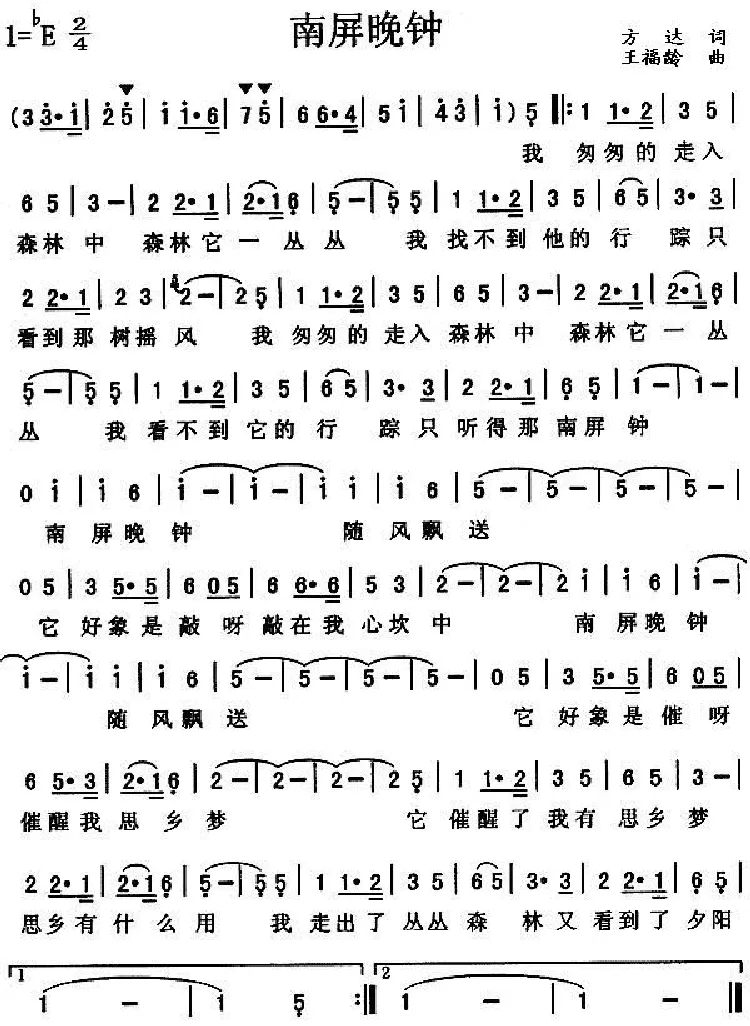 1=♭E 2/4 南屏晚钟 方达 词
王福龄 曲
(3 3·1 | 2 5 | 1 1·6 | 7 5 | 6 6·4 | 5 1 | 4 3 | 1 ) 5 ‖: 1 1·2 | 3 5 |
我 匆匆的 走入
6 5 | 3 - | 2 2·1 | 2·1 6 | 5 - | 5 5 | 1 1·2 | 3 5 | 6 5 | 3· 3 |
森林 中 森林它 一 丛 丛 我 找不到 他的 行 踪 只
2 2·1 | 2 3 | 2 - | 2 5 | 1 1·2 | 3 5 | 6 5 | 3 - | 2 2·1 | 2·1 6 |
看到那 树摇 风 我 匆匆的 走入 森林 中 森林它 一 丛
5 - | 5 5 | 1 1·2 | 3 5 | 6 5 | 3· 3 | 2 2·1 | 6 5 | 1 - | 1 - |
丛 我 看不到 它的 行 踪 只 听得那 南屏 钟
0 1 | 1 6 | 1 - | 1 - | 1 1 | 1 6 | 5 - | 5 - | 5 - | 5 - |
南 屏晚 钟 随 风飘 送
0 5 | 3 5·5 | 6 0 5 | 6 6·6 | 5 3 | 2 - | 2 - | 2 1 | 1 6 | 1 - |
它 好象是 敲 呀 敲在我 心坎 中 南 屏晚 钟
1 - | 1 1 | 1 6 | 5 - | 5 - | 5 - | 5 - | 0 5 | 3 5·5 | 6 0 5 |
随 风飘 送 它 好象是 催 呀
6 5·3 | 2·1 6 | 2 - | 2 - | 2 - | 2 5 | 1 1·2 | 3 5 | 6 5 | 3 - |
催醒我 思 乡 梦 它 催醒了 我有 思乡 梦
2 2·1 | 2·1 6 | 5 - | 5 5 | 1 1·2 | 3 5 | 6 5 | 3· 3 | 2 2·1 | 6 5 |
思乡有 什 么 用 我 走出了 丛丛 森 林 又 看到了 夕阳
1 2
1 - | 1 5 :‖ 1 - | 1 - ‖